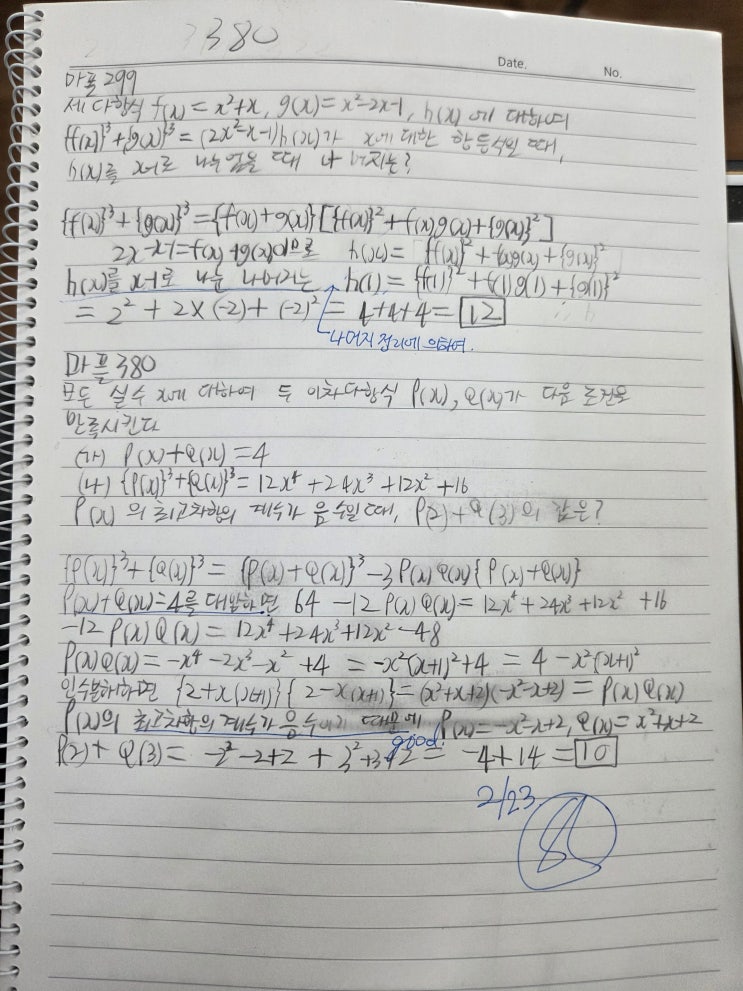 3380
Date.
No.
마플 299
세 다항식 f(x) = x²+x, g(x) = x²-2x-1, h(x)에 대하여
{f(x)}³+{g(x)}³ = (2x²-x-1)h(x)가 x에 대한 항등식일 때,
h(x)를 x-1로 나누었을 때 나머지는?
{f(x)}³+{g(x)}³ = {f(x)+g(x)}[{f(x)}²+f(x)g(x)+{g(x)}²]
2x²-x-1=f(x)+g(x)이므로 h(x)= {f(x)}²+f(x)g(x)+{g(x)}²
h(x)를 x-1로 나눈 나머지는 h(1)={f(1)}²+f(1)g(1)+{g(1)}²
= 2²+2×(-2)+(-2)² = 4+4+4 = 12
나머지 정리에 의하여.
마플 380
모든 실수 x에 대하여 두 이차다항식 P(x), Q(x)가 다음 조건을
만족시킨다
(가) P(x)+Q(x)=4
(나) {P(x)}³+{Q(x)}³=12x⁴+24x³+12x²+16
P(x)의 최고차항의 계수가 음수일 때, P(2)+Q(3)의 값은?
{P(x)}³+{Q(x)}³ = {P(x)+Q(x)}³-3P(x)Q(x){P(x)+Q(x)}
P(x)+Q(x)=4를 대입하면 64-12P(x)Q(x)=12x⁴+24x³+12x²+16
-12P(x)Q(x)=12x⁴+24x³+12x²-48
P(x)Q(x)=-x⁴-2x³-x²+4 = -x²(x+1)²+4 = 4-x²(x+1)²
인수분해하면 {2+x(x+1)}{2-x(x+1)}=(x²+x+2)(-x²-x+2)=P(x)Q(x)
P(x)의 최고차항의 계수가 음수이기 때문에 P(x)=-x²-x+2, Q(x)=x²+x+2
good
P(2)+Q(3)= -2²-2+2+3²+3+2= -4+14=10
2/23